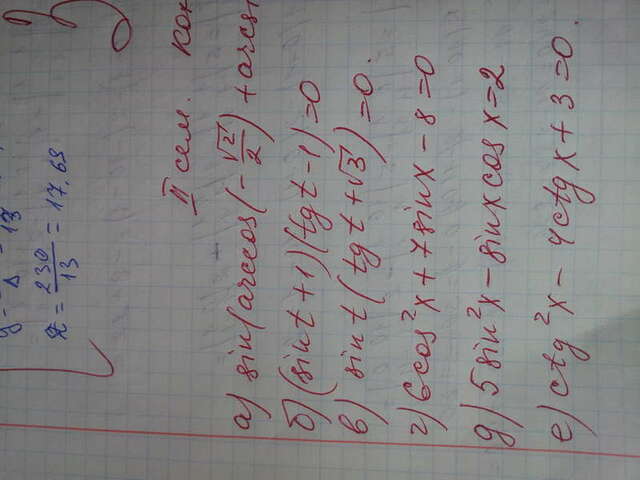 x̄ = 230/13 = 17,69
II сем.
а) sin(arccos(-√2/2) + arcsi
б) (sin t + 1)(tg t - 1) = 0
в) sin t (tg t + √3) = 0.
г) 6cos²x + 7sinx - 8 = 0
д) 5sin²x - sinxcosx = 2
е) ctg²x - 4ctgx + 3 = 0.